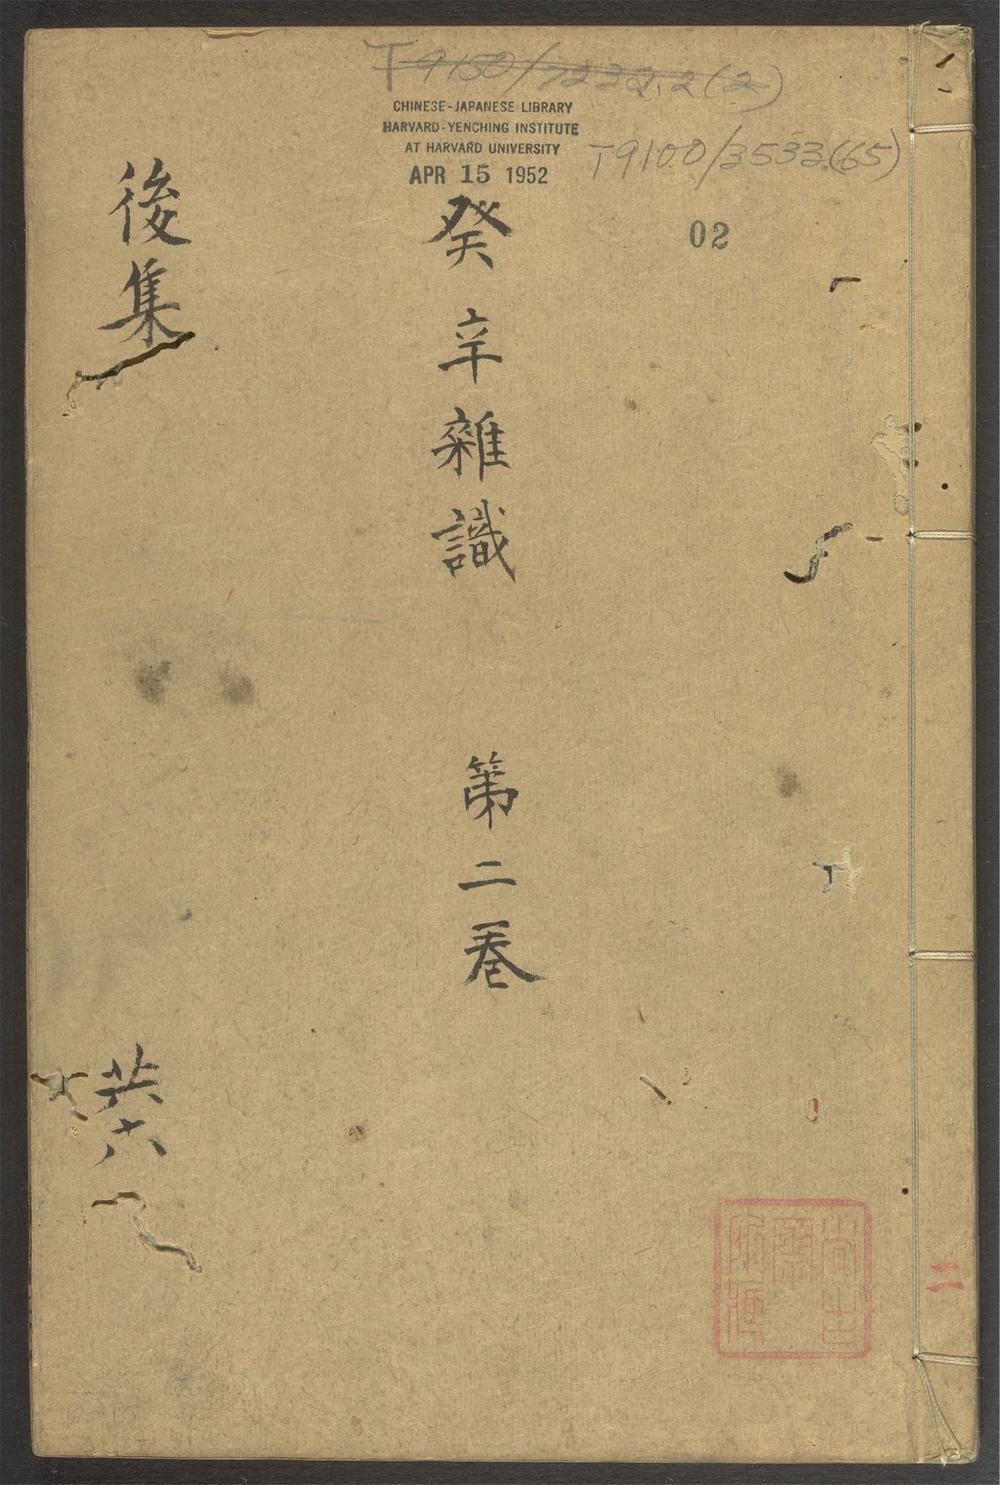 T9150/7232.2(2)
CHINESE-JAPANESE LIBRARY
HARVARD-YENCHING INSTITUTE
AT HARVARD UNIVERSITY
APR 15 1952
T9100/3533(65)
02
癸辛雜識 第二卷
後集
共六